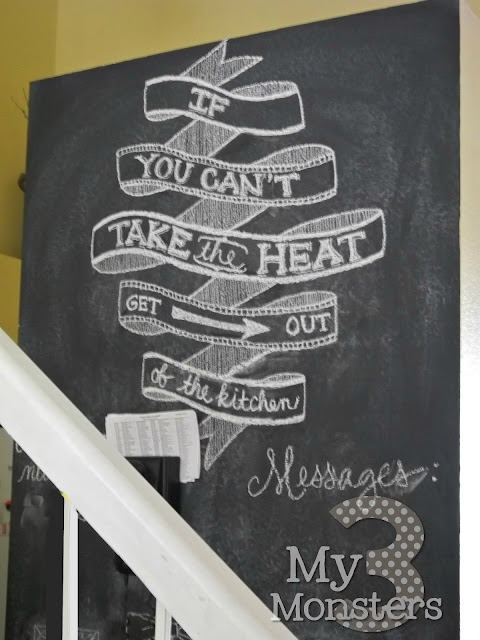 IF
YOU CAN'T
TAKE the HEAT
GET OUT
of the kitchen
Messages:
My 3
Monsters